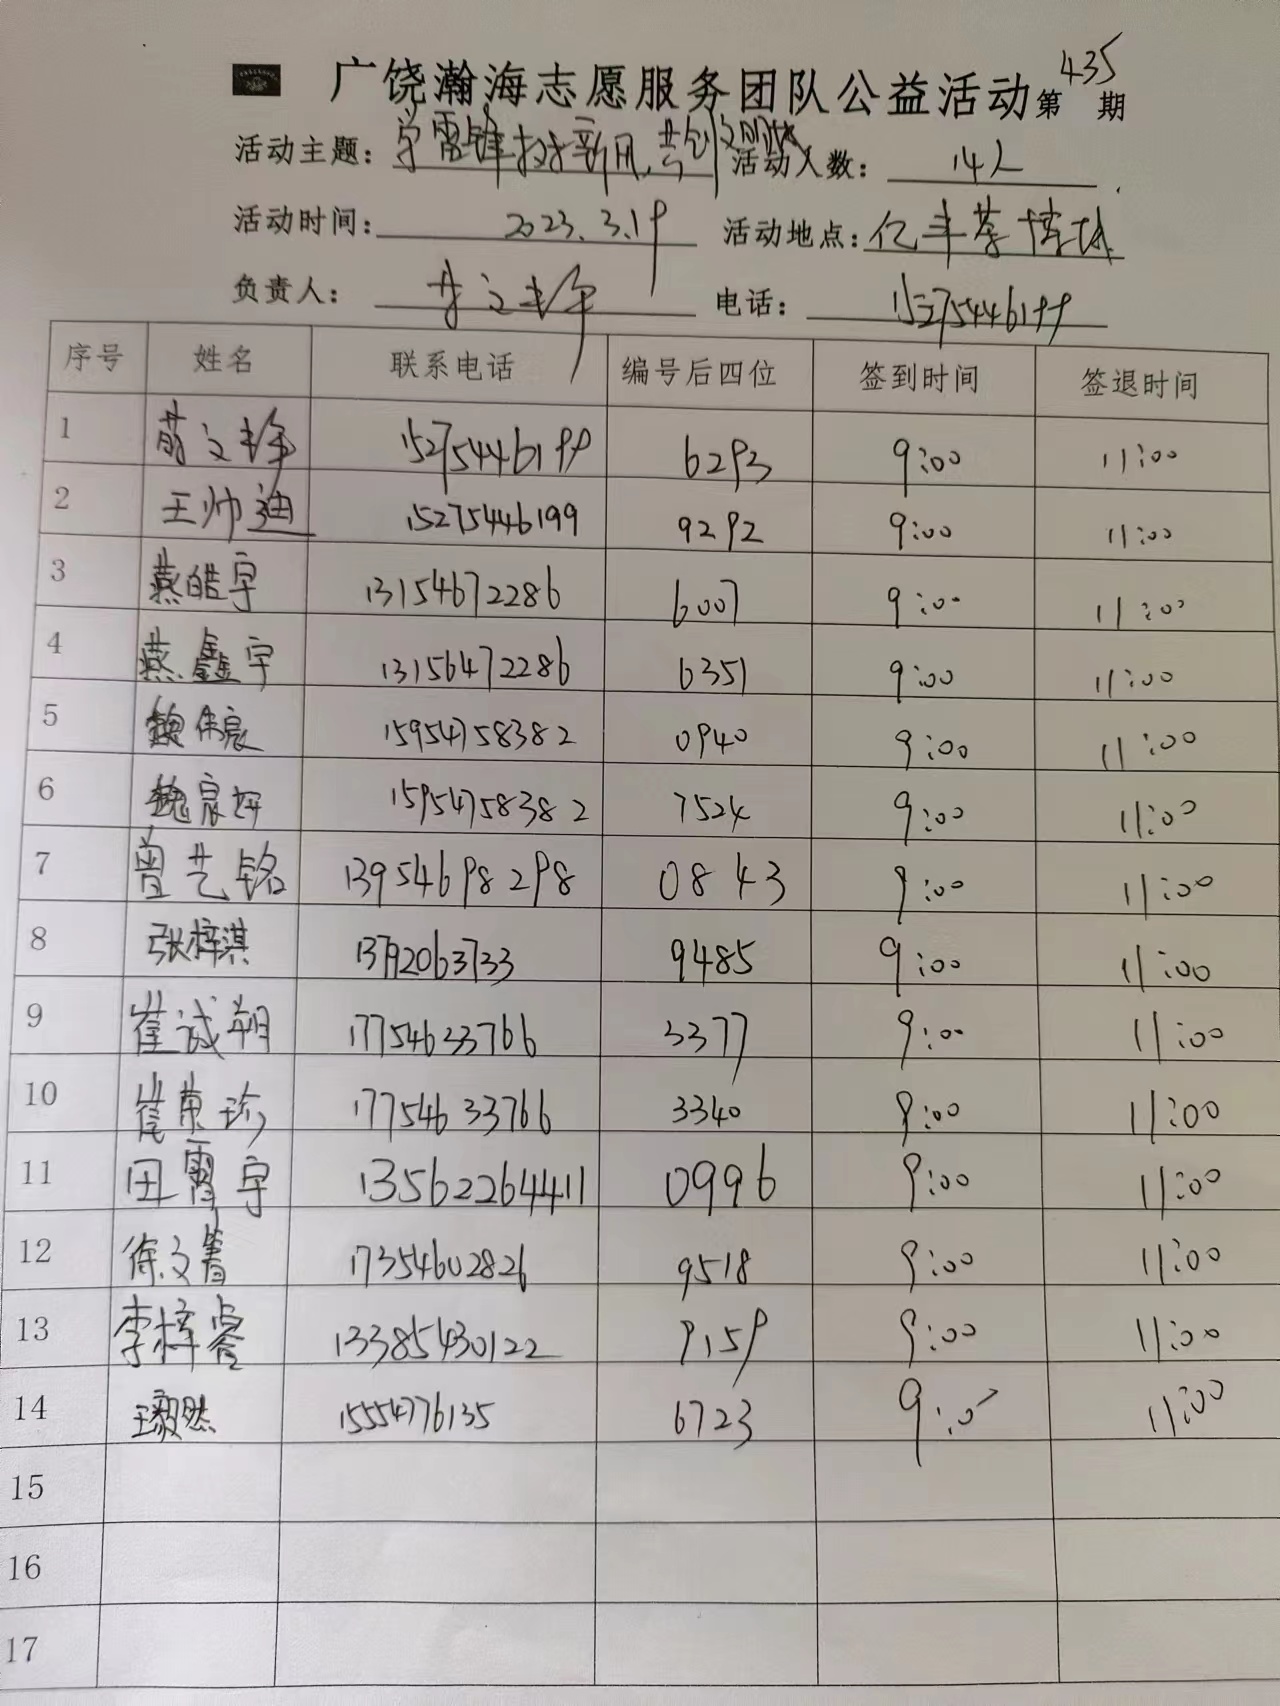 广饶瀚海志愿服务团队公益活动第435期
活动主题：学雷锋树新风，共创文明城 活动人数：14人
活动时间：2023.3.19 活动地点：亿丰荟博城
负责人： 电话：15275446199
序号 姓名 联系电话 编号后四位 签到时间 签退时间
1 15275446199 6293 9:00 11:00
2 王帅迪 15275446199 9292 9:00 11:00
3 燕皓宇 13154672286 6007 9:00 11:00
4 燕鑫宇 13156472286 6351 9:00 11:00
5 魏伟宸 15954758382 0940 9:00 11:00
6 魏宸妤 15954758382 7524 9:00 11:00
7 曾艺铭 13954698298 0843 9:00 11:00
8 张梓淇 13792063733 9485 9:00 11:00
9 崔诚朔 17754633766 3377 9:00 11:00
10 崔荣珍 17754633766 3340 9:00 11:00
11 田霄宇 13562264411 0996 9:00 11:00
12 徐文菁 17354602826 9518 9:00 11:00
13 李梓睿 13385430122 9159 9:00 11:00
14 王毅然 15554776135 6723 9:00 11:00
15
16
17